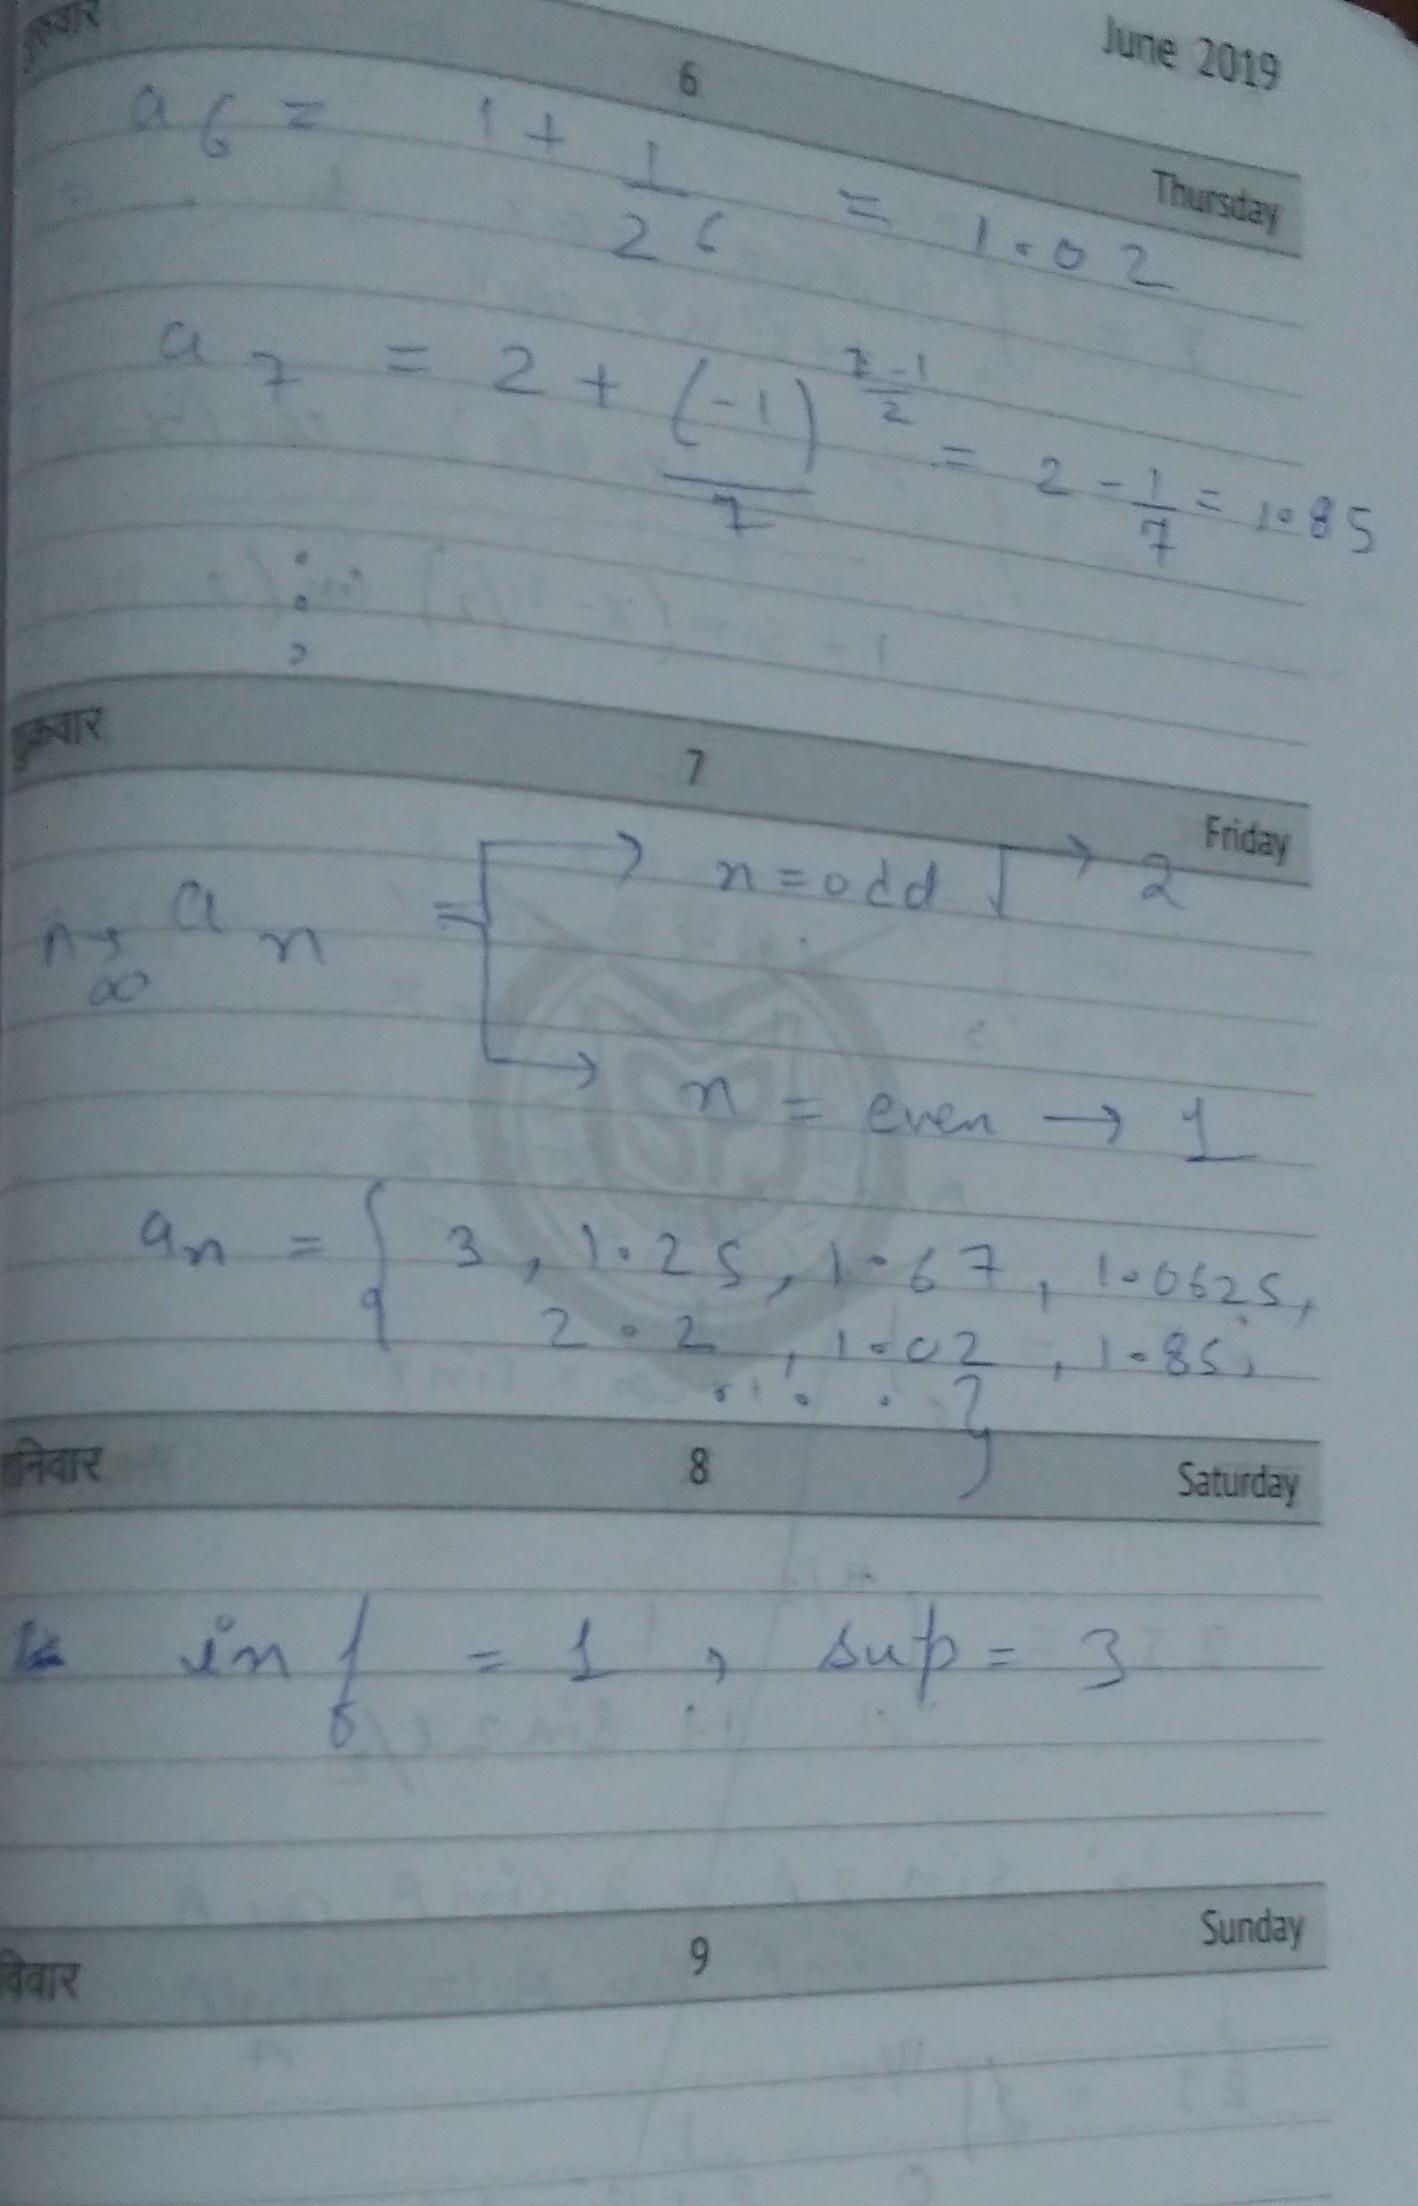 June 2019
6
Thursday
a₆ = 1 + 1/2⁶ = 1.02
a₇ = 2 + (-1)^((7-1)/2)/7 = 2 - 1/7 = 1.85
7
Friday
n→∞ aₙ = → n = odd → 2
→ n = even → 1
aₙ = { 3, 1.25, 1.67, 1.0625,
2.2, 1.02, 1.85,
. . . . }
8
Saturday
inf = 1, sup = 3
9
Sunday